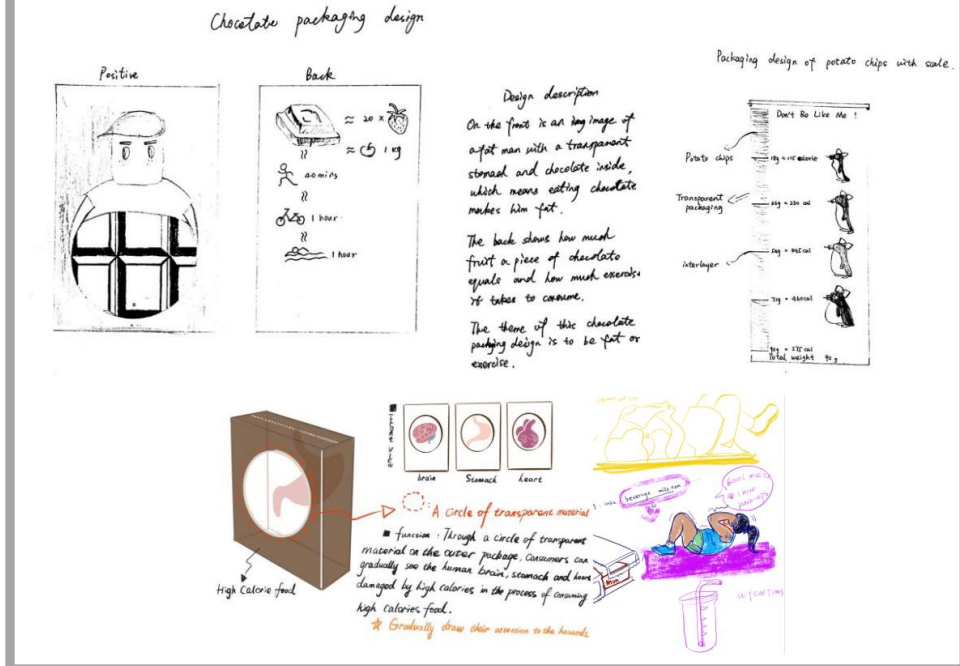 Chocolate packaging design
Positive
Back
≈ 20 ×
≈ 1 kg
40 mins
1 hour
1 hour
Design description
On the front is an img image of
a fat man with a transparent
stomach and chocolate inside,
which means eating chocolate
makes him fat.
The back shows how much
fruit a piece of chocolate
equals and how much exercise
it takes to consume.
The theme of this chocolate
packging design is to be fat or
exercise.
Packaging design of potato chips with scale.
Don't Be Like Me !
Potato chips
18g = 115 calorie
Transparent
packaging
= 230 cal
interlayer
= 345 cal
72g = 460 cal
90g = 575 cal
Total weight 90g
brain
Stomach
heart
: A circle of transparent material
■ function : Through a circle of transparent
material on the outer package, consumers can
gradually see the human brain, stomach and heart
damaged by high calories in the process of consuming
high calories food.
☆ Gradually draw their attention to the hazards
High Calorie food
beverage
1 hour